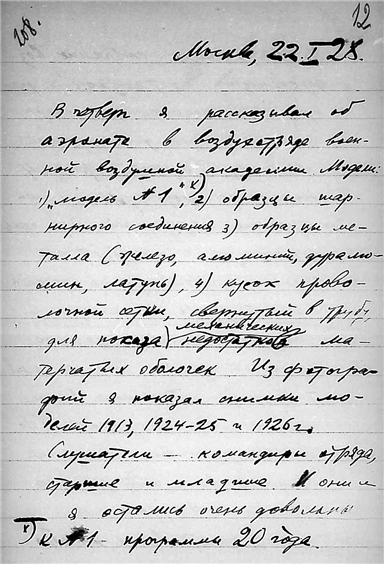 208.
12
Москва, 22.I 28.
В четверг я рассказывал об
аэронате в воздухотряде воен-
ной воздушной академии Модели:
1) „модель №1", x) 2) образцы шар-
нирного соединения 3) образцы ме-
талла (железо, алюминий, дуралю-
мин, латунь), 4) кусок прово-
лочной сетки, свернутый в трубу,
механических
для показа) недостатков ма-
терчатых оболочек Из фотогра-
фий я показал снимки мо-
делей 1913, 1924-25 и 1926г.
Слушатели — командиры отряда,
старшие и младшие. И они и
я остались очень довольны
x) К №1 - программы 20 года.